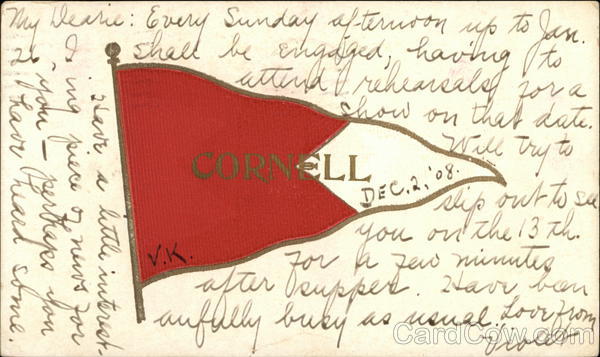 My Dearie: Every Sunday afternoon up to Jan.
26, I shall be engaged, having to
attend rehearsals for a
show on that date.
Will try to
slip out to see
you on the 13th.
for a few minutes
after supper. Have been
awfully busy as usual. Love from
Have a little interest-
ing piece of news for
you — perhaps you
have heard some.
CORNELL
DEC. 2, '08.
V.K.
CardCow.com